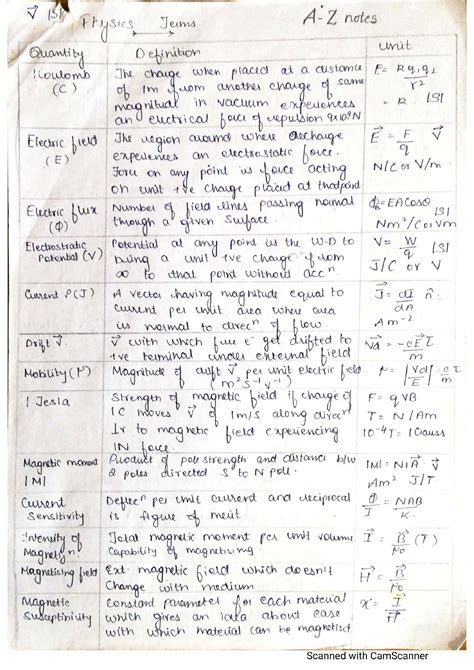 V⃗ |S| Physics Terms A-Z notes
Quantity Definition Unit
1 Coulomb (C) The charge when placed at a distance E = Kq1q2/r²
of 1m from another charge of same = K |S|
magnitud in vacuum experiences
an electrical force of repulsion 9x10⁹N
Electric field (E) The region around where
experiences an electrostatic force. E⃗ = F/q V⃗
Force on any point is force acting N/C or V/m
on unit +ve charge placed at
Electric flux (Φ) Number of field lines passing normal Φ = EACosθ |S|
through a given surface. Nm²/C or Vm
Electrostratic Potential (V) Potential at any point is the W.D to V = W/q |S|
bring a unit +ve charge from J/C or V
∞ to that point without accⁿ
Current (J) A vector having magnitude equal to J⃗ = dI/dA n̂
current per unit area where area
is normal to direcⁿ of flow Am⁻²
Drift V⃗ V⃗ with which free e⁻ get drifted to V⃗d = -eE⃗τ/m
+ve terminal under external field
Mobility (μ) Magnitude of drift V⃗ per unit electric field μ = |Vd/E| = eτ/m
(m²s⁻¹v⁻¹)
1 Tesla Strength of magnetic field if charge of F = qVB
1C moves V⃗ of 1m/s along direcⁿ T = N/Am
⊥r to magnetic field experiencing 10⁻⁴T = 1 Gauss
1N force
Magnetic moment |M| Product of pole strength and distance b/w |M| = NIA⃗ V⃗
2 poles directed S to N pole. Am² J/T
Current Sensitivity Deflecⁿ per unit current and reciprocal Φ/I = NAB/K
is figure of merit.
Intensity of Magnetisⁿ Total magnetic moment per unit volume. I⃗ = B⃗/μo (T)
Capability of magnetising
Magnetising field Ext. magnetic field which doesn't H⃗ = B⃗/μo
change with medium
Magnetic Susceptinivity Constant parameter for each material x = I⃗/H⃗
which gives an idea about ease
with which material can be magnetised
Scanned with CamScanner